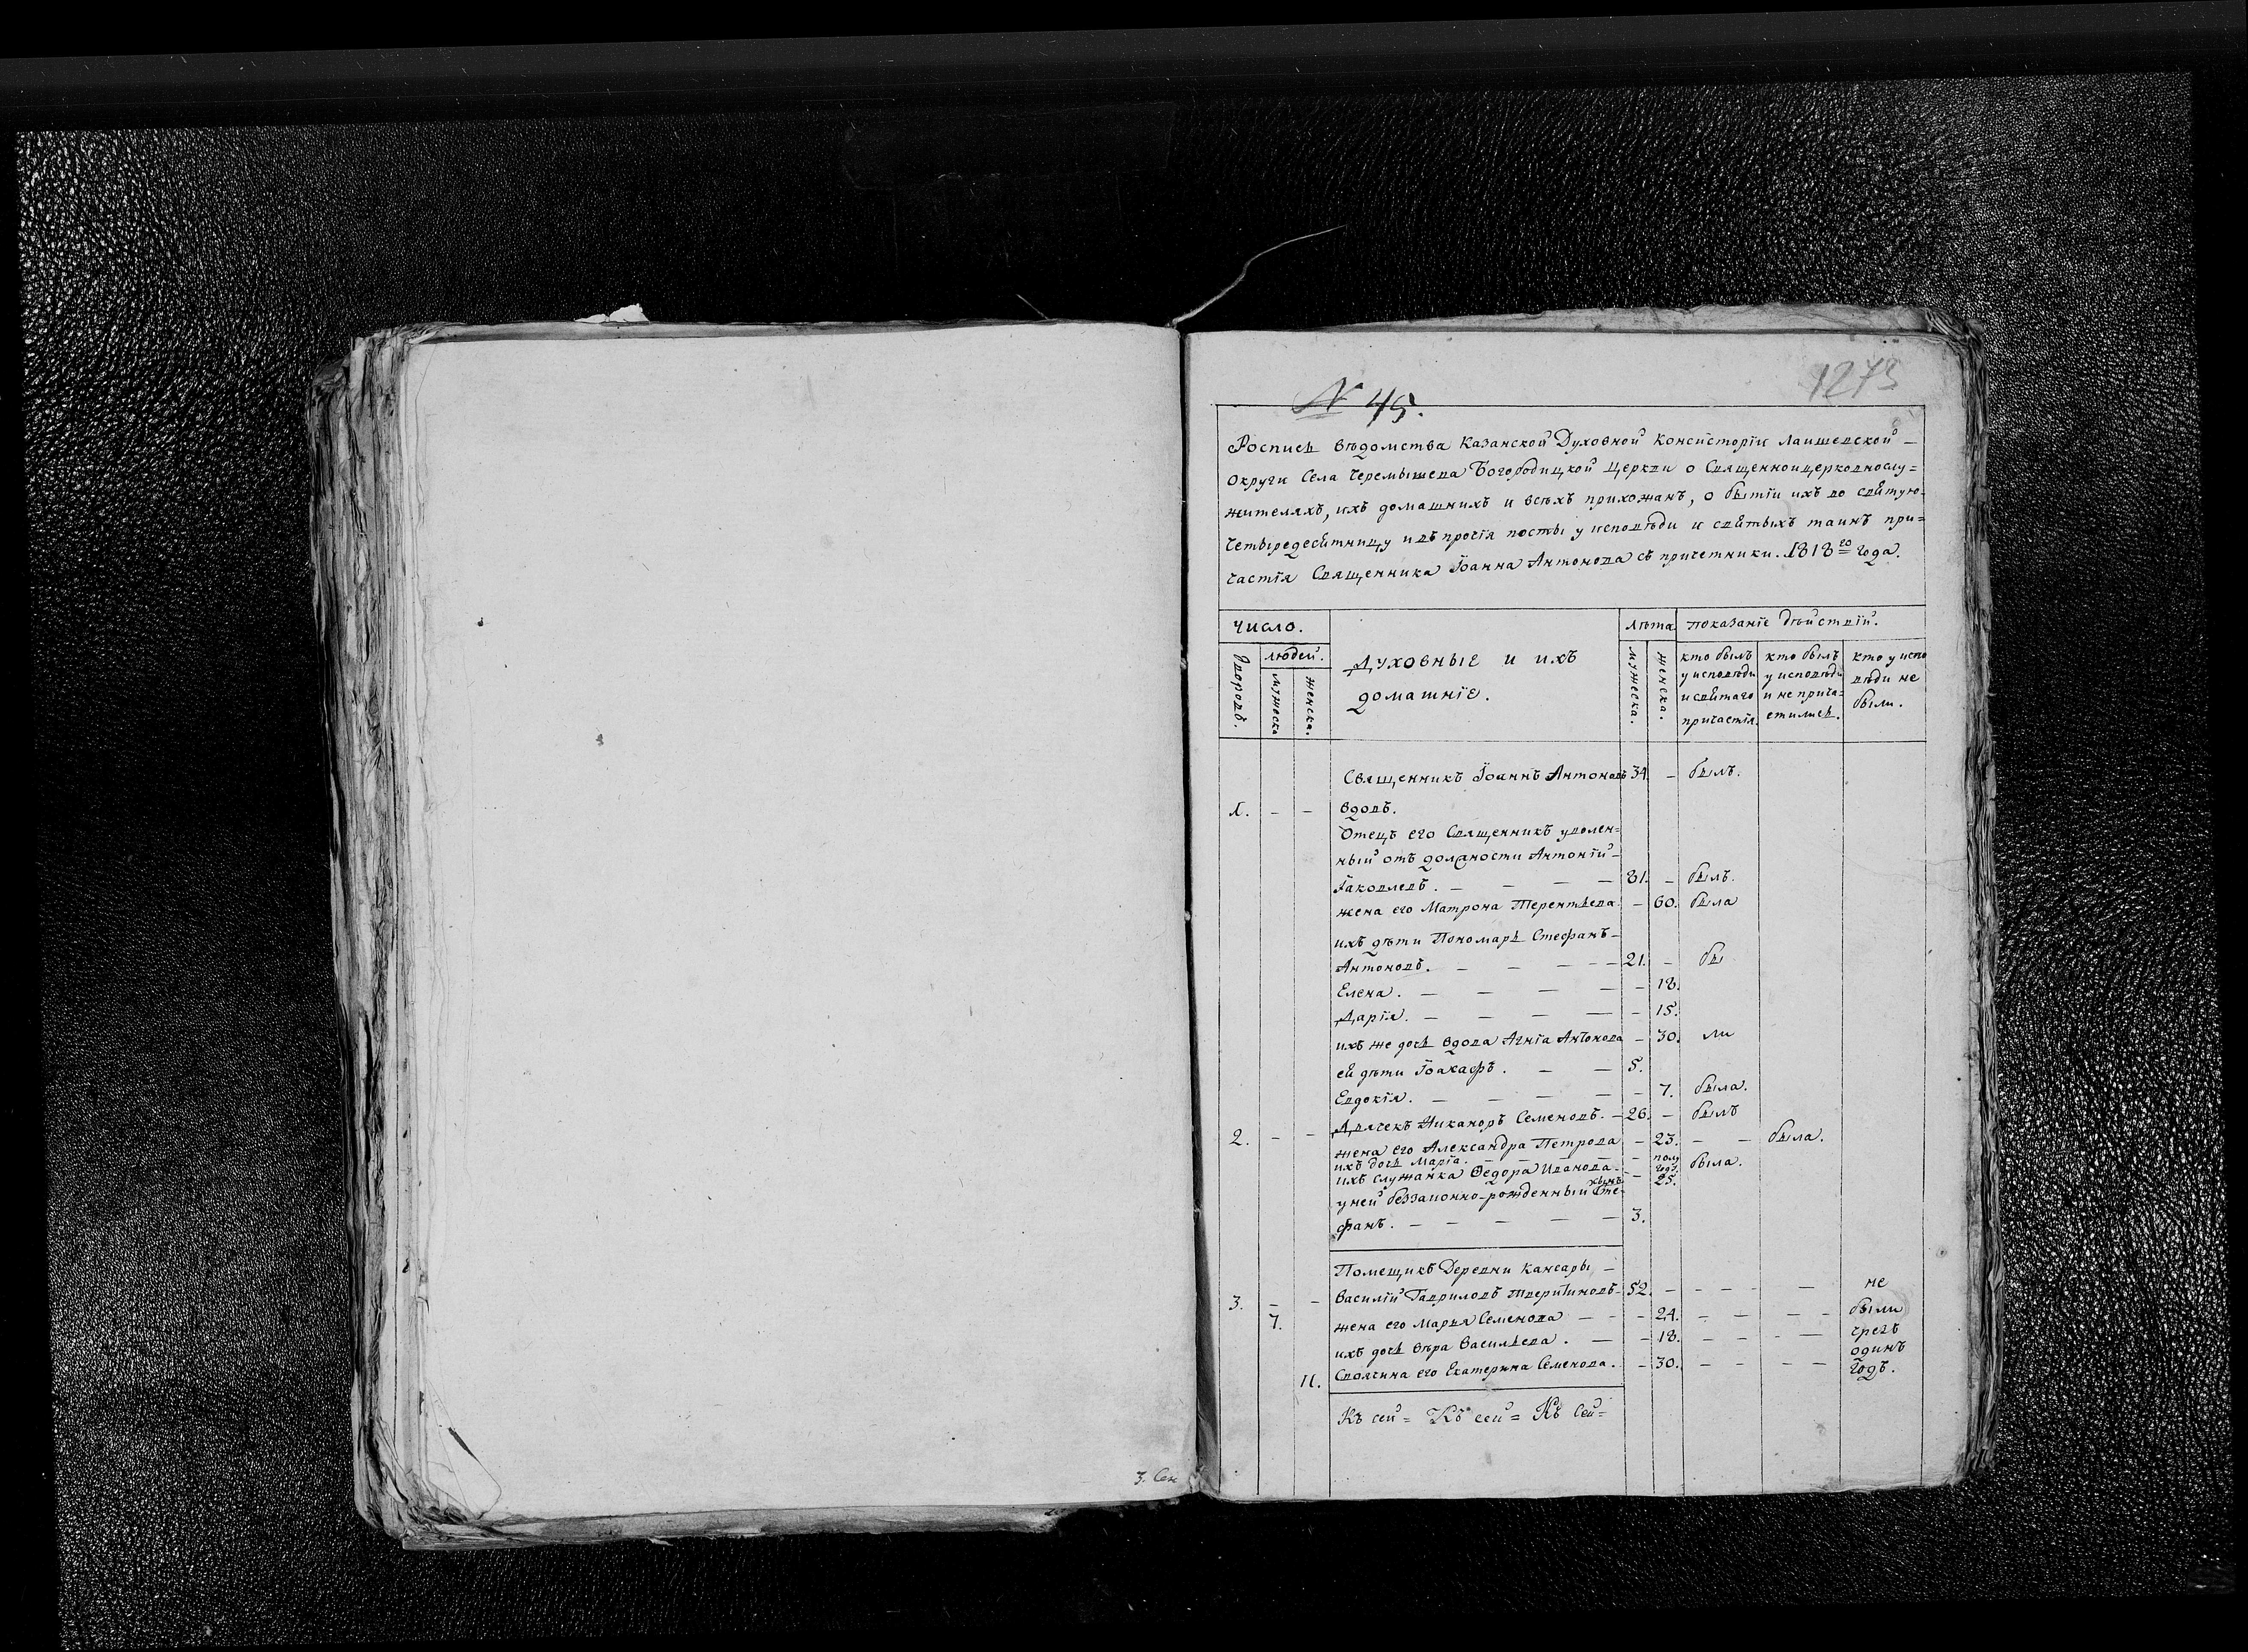 1273
№ 45.
Роспись вѣдомства Казанской Духовной Консисторіи Лаишевской
округи Села Черемышева Богородицкой церкви о Священноцерковнослу=
жителяхъ, ихъ домашнихъ и всѣхъ прихожанъ, о бытіи ихъ во святую
четыредесятницу и въ прочія посты у исповѣди и святыхъ таинъ при=
частія Священника Іоанна Антонова съ причетники. 1818го года.
число. лѣта показаніе дѣйствій.
дворовъ. людей. мужеска женска.
духовные и ихъ
домашніе.
мужеска. женска.
кто былъ у исповѣди и святаго причастія.
кто былъ у исповѣди и не прича=стились.
кто у испо вѣди не были.
Священникъ Іоаннъ Антоновъ 34. – былъ.
1. – – вдовъ.
Отецъ его Священникъ уволен=
ный отъ должности Антоній –
Іаковлевъ. – – – – 81. – былъ.
жена его Матрона Терентьева. – 60. была
ихъ дѣти Пономарь Стефанъ –
Антоновъ. – – – – – 21. – бы
Елена. – – – – – 18.
Дарія. – – – – – 15.
ихъ же дочь вдова Агнія Антонова – 30. ли
ей дѣти Іоасафъ. – – 5.
Евдокія. – – – – – 7. была.
2. – – Дьячекъ Никаноръ Семеновъ. – 26. – былъ
жена его Александра Петрова – 23. – – была.
ихъ дочь Марія. – – – – полу годъ. была.
ихъ служанка Ѳедора Иванова. – – 25.
у ней беззаконно-рожденный сынъ Сте=
фанъ. – – – – – 3.
Помещикъ Деревни Кансары –
3. – – Василій Гавриловъ Тверитиновъ – 52. – – – – не
7. жена его Марья Семенова – – – 24. – – – – были
ихъ дочь Вѣра Васильева. – – 18. – – – – чрезъ
одинъ
11. Своячина его Екатерина Семенова. – 30. – – – – годъ.
Къ сей = Къ сей = Къ сей =
3. Сен